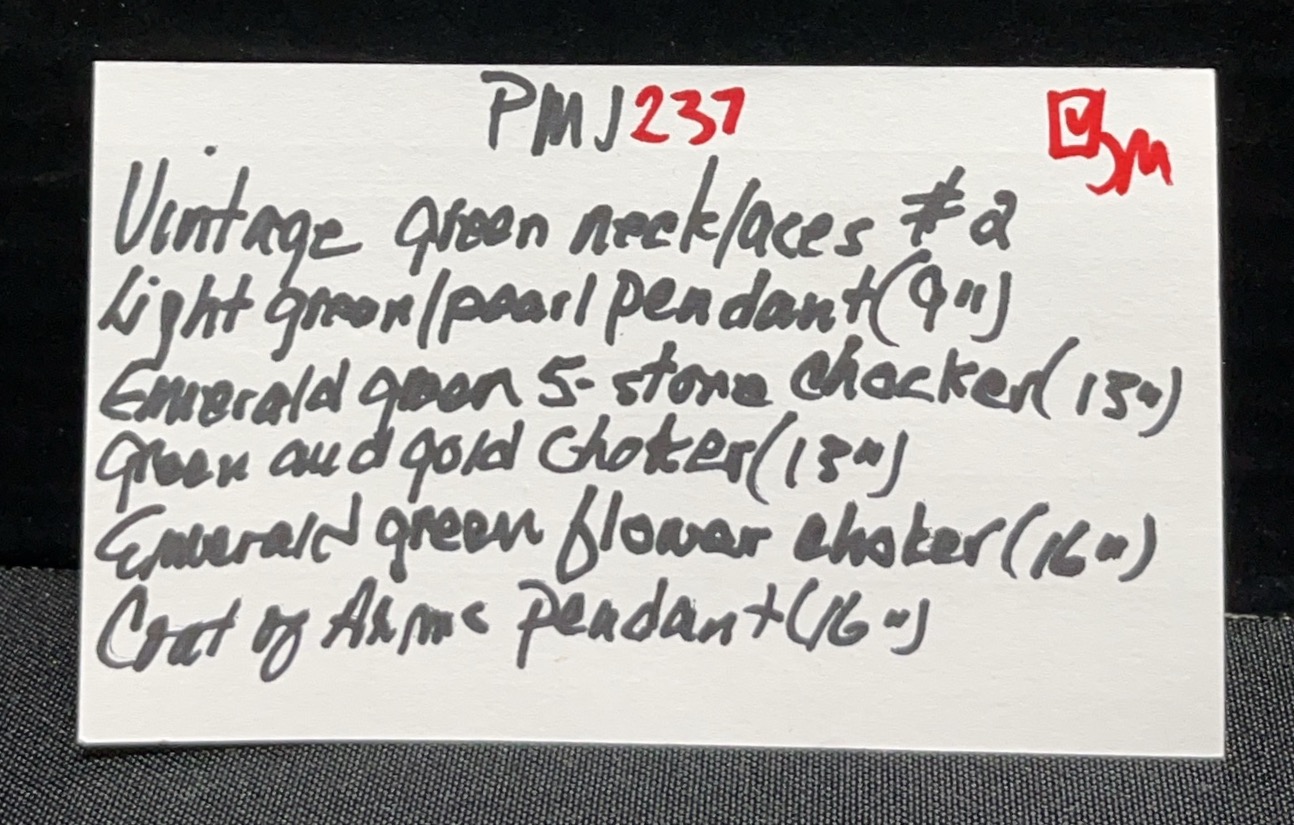 PMJ237
Vintage green necklaces #2
Light green/pearl pendant (9")
Emerald green 5-stone chocker (15")
Green and gold choker (13")
Emerald green flower choker (16")
Coat of Arms pendant (16")